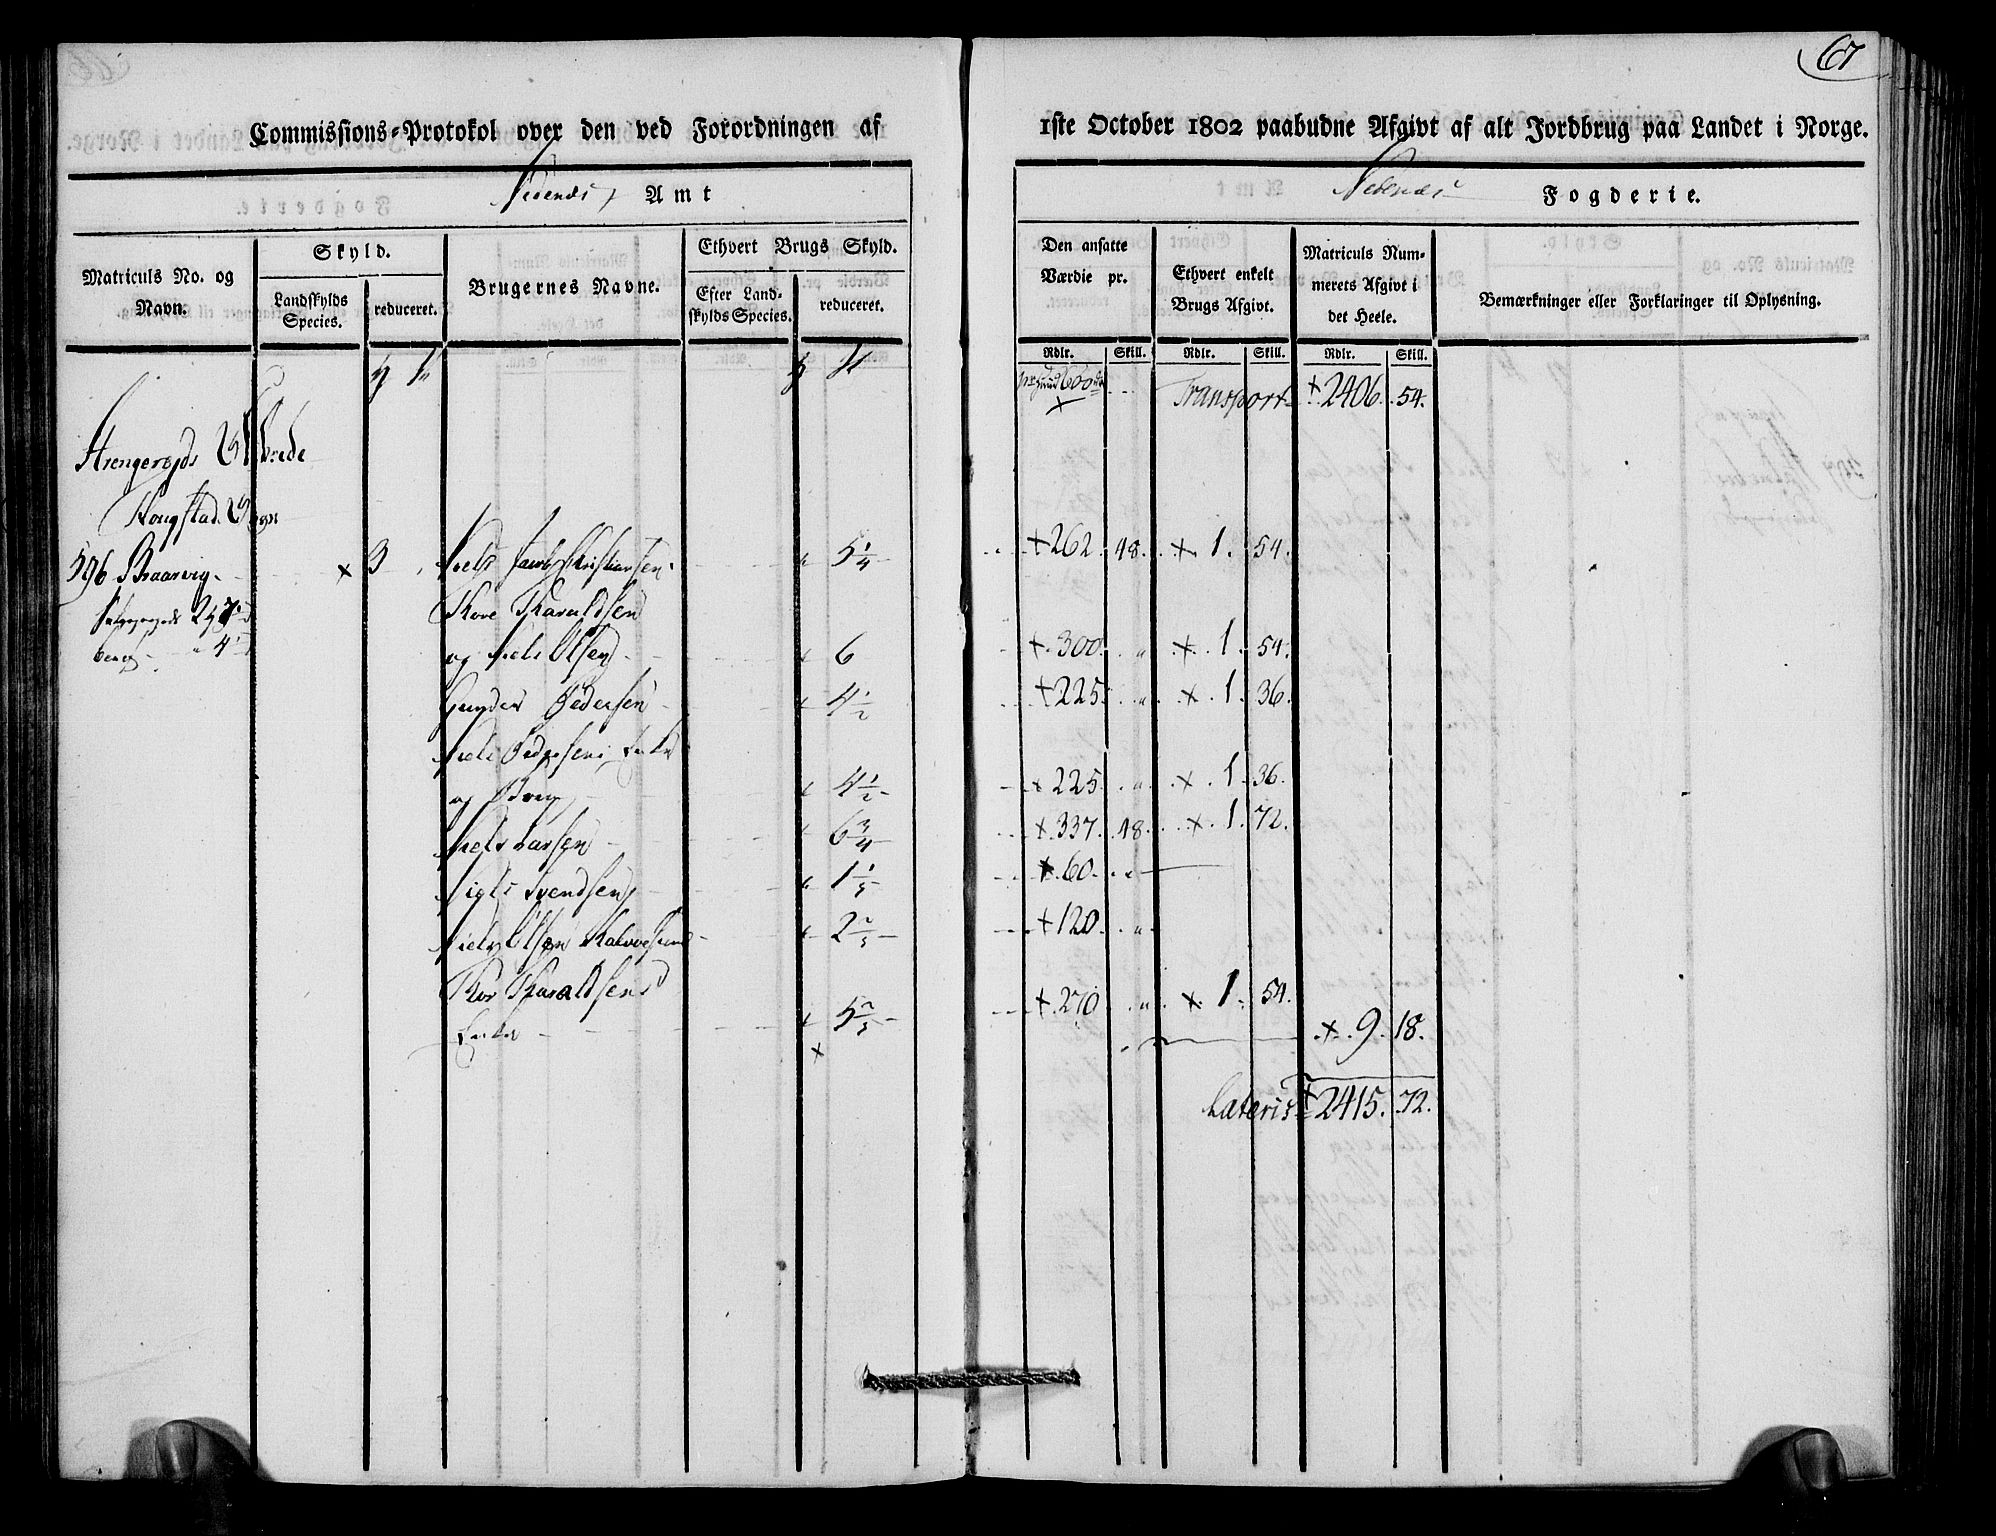 67
Commissions-Protokol over den ved Forordningen af 1ste October 1802 paabudne Afgivt af alt Jordbrug paa Landet i Norge.
Nedenes Amt
Nedenes Fogderie.
Matriculs No. og Navn.
Skyld.
Landskylds Species.
reduceret.
Brugernes Navne.
Ethvert Brugs Skyld.
Efter Landskylds Species.
reduceret.
Den ansatte Værdie pr.
Ethvert enkelt Brugs Afgivt.
Matriculs Nummerets Afgivt i det Heele.
Bemærkninger eller Forklaringer til Oplysning.
Rdlr. Skill. Rdlr. Skill. Rdlr. Skill.
600 Transport 2406. 54.
Strengereids
Sogn
596 3 Niels Jacob Christiansen 5 1/4 262. 48. 1. 54.
Thore Haraldsen
og Niels Olsen 6 300. 1. 54.
Gunder Pedersen 4 1/2 225. 1. 36.
Niels Pedersens Enke
og 4 1/2 225. 1. 36.
Niels Larsen 6 3/4 337. 48. 1. 72.
Niels Svendsen 1 1/5 60.
Niels Olsen 2 2/5 120
Thor Haraldsens
Enke 5 2/5 270 1. 54.
9. 18.
Lateris 2415. 72.